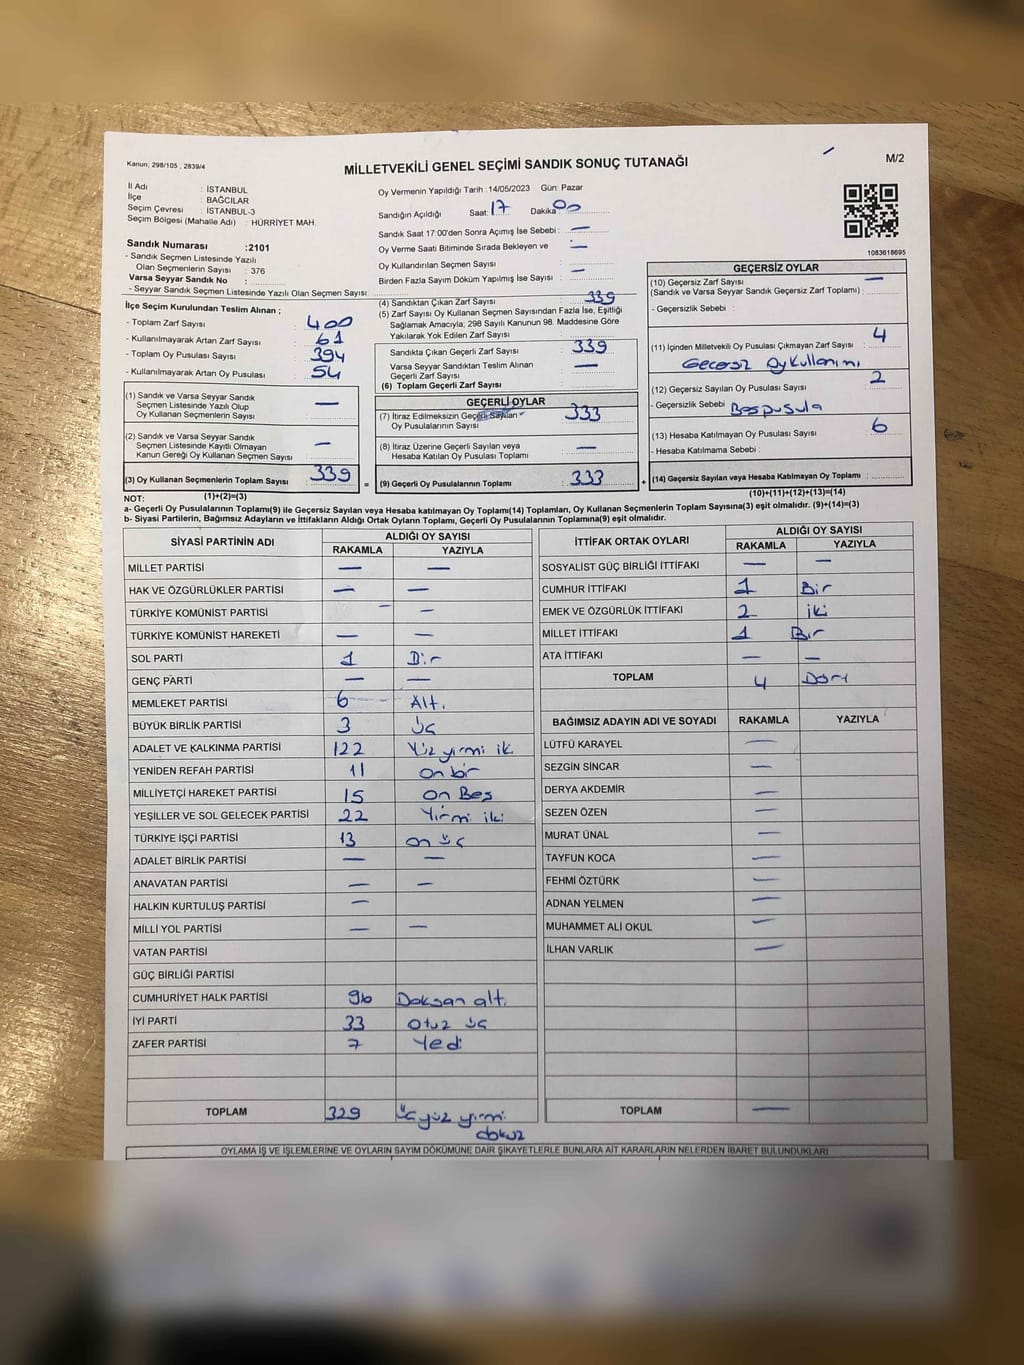 Kanun; 298/105 , 2839/4
MİLLETVEKİLİ GENEL SEÇİMİ SANDIK SONUÇ TUTANAĞI
M/2
İl Adı : İSTANBUL
İlçe : BAĞCILAR
Seçim Çevresi : İSTANBUL-3
Seçim Bölgesi (Mahalle Adı) : HÜRRİYET MAH.
Oy Vermenin Yapıldığı Tarih : 14/05/2023 Gün: Pazar
Sandığın Açıldığı Saat: 17 Dakika: 00
Sandık Saat 17.00'den Sonra Açımış İse Sebebi : —
Oy Verme Saati Bitiminde Sırada Bekleyen ve —
Oy Kullandırılan Seçmen Sayısı
Birden Fazla Sayım Döküm Yapılmış İse Sayısı : —
1083618695
Sandık Numarası :2101
- Sandık Seçmen Listesinde Yazılı
Olan Seçmenlerin Sayısı : 376
Varsa Seyyar Sandık No :
- Seyyar Sandık Seçmen Listesinde Yazılı Olan Seçmen Sayısı:
İlçe Seçim Kurulundan Teslim Alınan ;
- Toplam Zarf Sayısı : 400
- Kullanılmayarak Artan Zarf Sayısı : 61
- Toplam Oy Pusulası Sayısı : 394
- Kullanılmayarak Artan Oy Pusulası : 54
(1) Sandık ve Varsa Seyyar Sandık
Seçmen Listesinde Yazılı Olup
Oy Kullanan Seçmenlerin Sayısı : —
(2) Sandık ve Varsa Seyyar Sandık
Seçmen Listesinde Kayıtlı Olmayan
Kanun Gereği Oy Kullanan Seçmen Sayısı : —
(3) Oy Kullanan Seçmenlerin Toplam Sayısı : 339
(1)+(2)=(3)
(4) Sandıktan Çıkan Zarf Sayısı : 339
(5) Zarf Sayısı Oy Kullanan Seçmen Sayısından Fazla İse, Eşitliği
Sağlamak Amacıyla; 298 Sayılı Kanunun 98. Maddesine Göre
Yakılarak Yok Edilen Zarf Sayısı :
Sandıkta Çıkan Geçerli Zarf Sayısı : 339
Varsa Seyyar Sandıktan Teslim Alınan
Geçerli Zarf Sayısı : —
(6) Toplam Geçerli Zarf Sayısı
GEÇERLİ OYLAR
(7) İtiraz Edilmeksizin Geçerli Sayılan
Oy Pusulalarının Sayısı : 333
(8) İtiraz Üzerine Geçerli Sayılan veya
Hesaba Katılan Oy Pusulası Toplamı : —
= (9) Geçerli Oy Pusulalarının Toplamı : 333
GEÇERSİZ OYLAR
(10) Geçersiz Zarf Sayısı —
(Sandık ve Varsa Seyyar Sandık Geçersiz Zarf Toplamı) :
- Geçersizlik Sebebi :
(11) İçinden Milletvekili Oy Pusulası Çıkmayan Zarf Sayısı : 4
Gecersz Oy Kullanımı
(12) Geçersiz Sayılan Oy Pusulası Sayısı : 2
- Geçersizlik Sebebi : Bospusula
(13) Hesaba Katılmayan Oy Pusulası Sayısı : 6
- Hesaba Katılmama Sebebi :
+ (14) Geçersiz Sayılan veya Hesaba Katılmayan Oy Toplamı :
(10)+(11)+(12)+(13)=(14)
NOT:
a- Geçerli Oy Pusulalarının Toplamı(9) ile Geçersiz Sayılan veya Hesaba katılmayan Oy Toplamı(14) Toplamları, Oy Kullanan Seçmenlerin Toplam Sayısına(3) eşit olmalıdır. (9)+(14)=(3)
b- Siyasi Partilerin, Bağımsız Adayların ve İttifakların Aldığı Ortak Oyların Toplamı, Geçerli Oy Pusulalarının Toplamına(9) eşit olmalıdır.
SİYASİ PARTİNİN ADI
ALDIĞI OY SAYISI
RAKAMLA YAZIYLA
MİLLET PARTİSİ — —
HAK VE ÖZGÜRLÜKLER PARTİSİ — —
TÜRKİYE KOMÜNİST PARTİSİ — —
TÜRKİYE KOMÜNİST HAREKETİ — —
SOL PARTİ 1 Bir
GENÇ PARTİ — —
MEMLEKET PARTİSİ 6 Altı
BÜYÜK BİRLİK PARTİSİ 3 üç
ADALET VE KALKINMA PARTİSİ 122 Yüz yirmi iki
YENİDEN REFAH PARTİSİ 11 on bir
MİLLİYETÇİ HAREKET PARTİSİ 15 on Beş
YEŞİLLER VE SOL GELECEK PARTİSİ 22 Yirmi iki
TÜRKİYE İŞÇİ PARTİSİ 13 on üç
ADALET BİRLİK PARTİSİ — —
ANAVATAN PARTİSİ — —
HALKIN KURTULUŞ PARTİSİ —
MİLLİ YOL PARTİSİ — —
VATAN PARTİSİ
GÜÇ BİRLİĞİ PARTİSİ
CUMHURİYET HALK PARTİSİ 96 Doksan altı
İYİ PARTİ 33 otuz üç
ZAFER PARTİSİ 7 Yedi
TOPLAM 329 üçyüz yirmi
dokuz
İTTİFAK ORTAK OYLARI
ALDIĞI OY SAYISI
RAKAMLA YAZIYLA
SOSYALİST GÜÇ BİRLİĞİ İTTİFAKI — —
CUMHUR İTTİFAKI 1 Bir
EMEK VE ÖZGÜRLÜK İTTİFAKI 2 iki
MİLLET İTTİFAKI 1 Bir
ATA İTTİFAKI — —
TOPLAM 4 Dört
BAĞIMSIZ ADAYIN ADI VE SOYADI RAKAMLA YAZIYLA
LÜTFÜ KARAYEL —
SEZGİN SİNCAR —
DERYA AKDEMİR —
SEZEN ÖZEN —
MURAT ÜNAL —
TAYFUN KOCA —
FEHMİ ÖZTÜRK —
ADNAN YELMEN —
MUHAMMET ALİ OKUL —
İLHAN VARLIK —
TOPLAM —
OYLAMA İŞ VE İŞLEMLERİNE VE OYLARIN SAYIM DÖKÜMÜNE DAİR ŞİKAYETLERLE BUNLARA AİT KARARLARIN NELERDEN İBARET BULUNDUKLARI